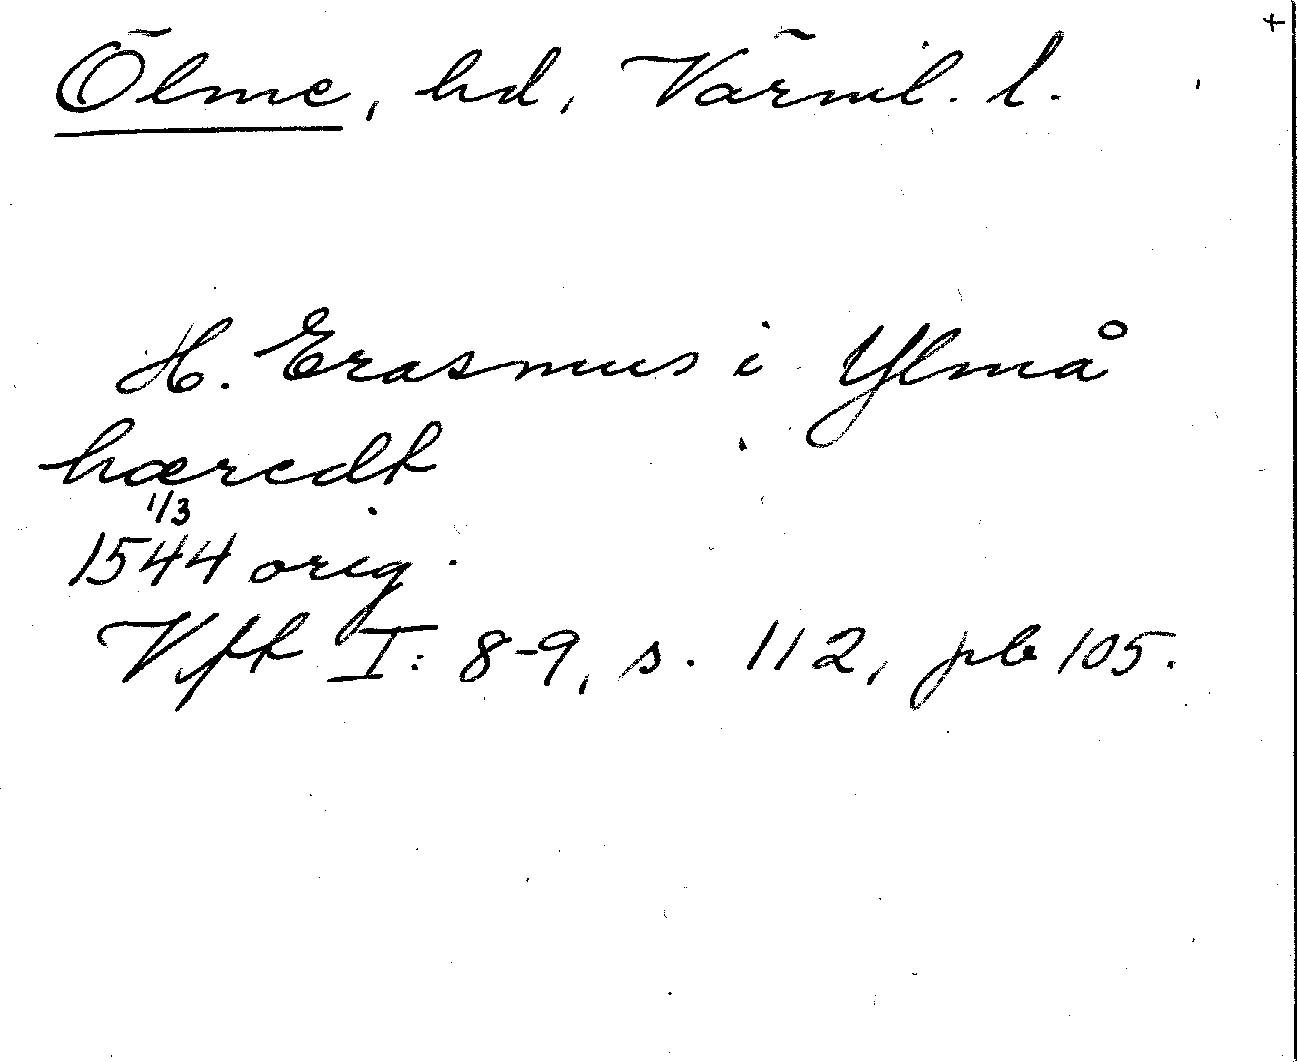 +
Ölme, hd, Värml. l.
H. Erasmus i Ylmå
hæredt
1/3
1544 orig.
Vfk I: 8-9, s. 112, pb 105.